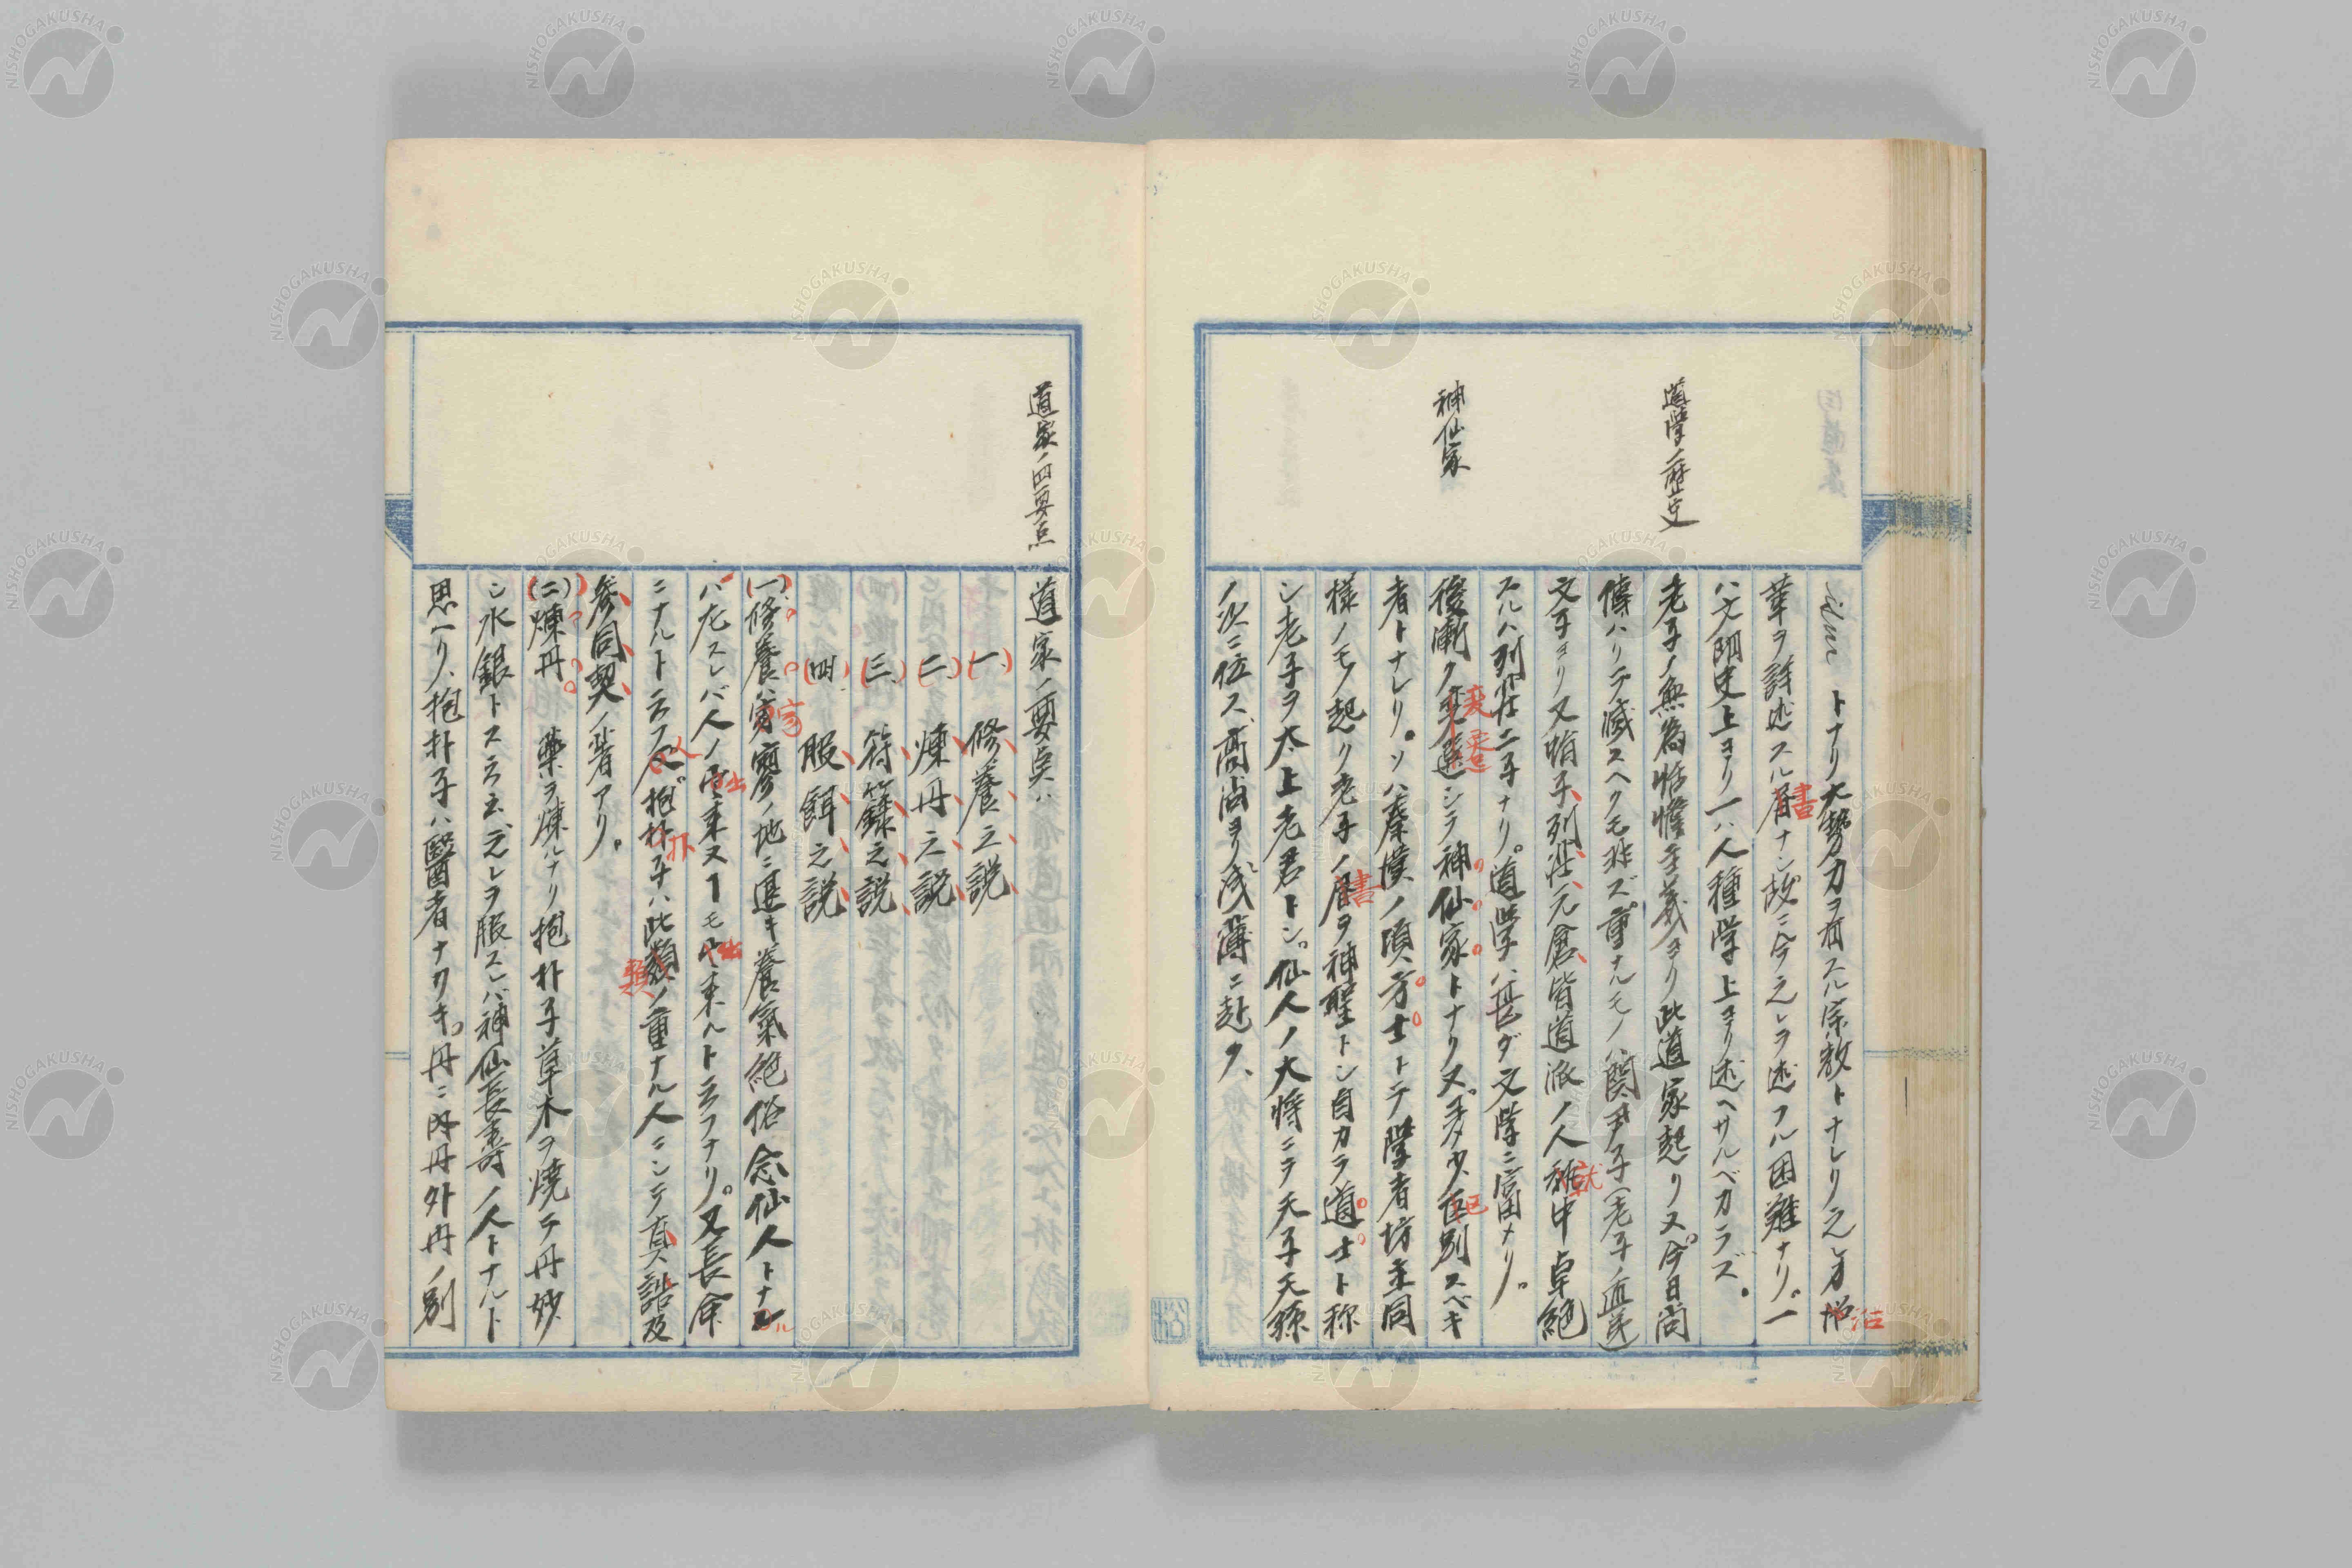 道学ノ歴史
神仙家
トナリ大勢力ヲ有スル宗教トナレリ之レガ沿
革ヲ詳述スル書ナシ故ニ今之レヲ述フル困難ナリ。一
ハ文明史上ヨリ一ハ人種学上ヨリ述ヘサルベカラズ。
老子ノ無為恬憺主義ヨリ此道家起リ又今日尚
傳ハリテ滅スヘクモ非ズ重ナルモノハ関尹子(老子ノ
文子ヨリ又鶡子、列、荘、元倉、皆道派ノ人就中卓絶
スルハ列荘二子ナリ。道学ハ甚ダ文学ニ富メリ。
後漸ク変遷シテ神仙家トナリ又多少区別スベキ
者トナレリ。ソハ秦漢ノ頃方士トテ学者坊主同
様ノモノ起リ老子ノ書ヲ神聖トシ自カラ道士ト称
シ老子ヲ太上老君トシ仙人ノ大将ニテ天子天
ノ次ニ位ス高尚ヨリ浅薄ニ赴ク、
道家ノ四要点
道家ノ要点ハ
(一)修養之説
(二)煉丹之説
(三)符籙之説
(四)服餌之説
(一)修養ハ寂寥ノ地ニ退キ養氣絶俗念仙人トナル
ハ左スレバ人ノ出来ヌヿモ出来ルト云フナリ。又長命
ニナルト云フ抱朴子ハ此類ノ重ナル人ニシテ真誥及
参同契ノ著アリ。
(二)煉丹。薬ヲ煉ルナリ抱朴子草木ヲ焼テ丹妙
シ水銀トスト云 之レヲ服スレバ神仙長寿ノ人トナルト
思ヘリ、抱朴子ハ醫者ナリキ。丹ニ内丹外丹ノ別
NISHOGAKUSHA